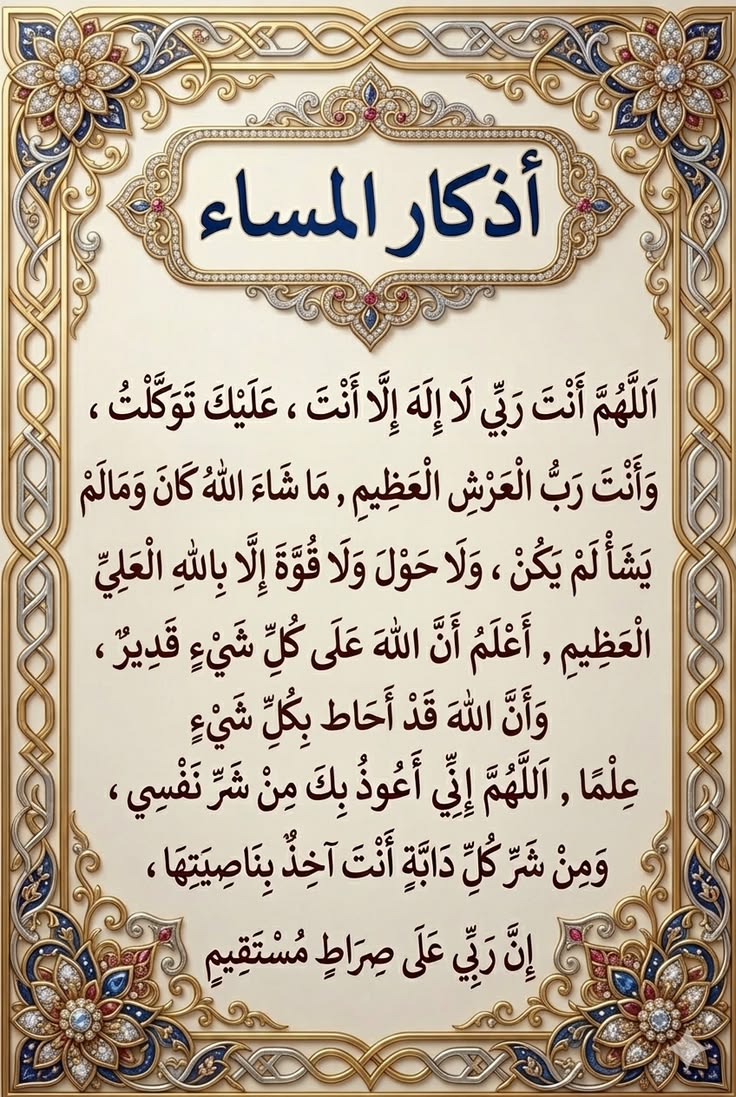 أذكار المساء
اَللَّهُمَّ أَنْتَ رَبِّي لَا إِلَهَ إِلَّا أَنْتَ ، عَلَيْكَ تَوَكَّلْتُ ،
وَأَنْتَ رَبُّ الْعَرْشِ الْعَظِيمِ , مَا شَاءَ اللهُ كَانَ وَمَالَمْ
يَشَأْ لَمْ يَكُنْ ، وَلَا حَوْلَ وَلَا قُوَّةَ إِلَّا بِاللهِ الْعَلِيِّ
الْعَظِيمِ , أَعْلَمُ أَنَّ اللهَ عَلَى كُلِّ شَيْءٍ قَدِيرٌ ،
وَأَنَّ اللهَ قَدْ أَحَاط بِكُلِّ شَيْءٍ
عِلْمًا , اَللَّهُمَّ إِنِّي أَعُوذُ بِكَ مِنْ شَرِّ نَفْسِي ،
وَمِنْ شَرِّ كُلِّ دَابَّةٍ أَنْتَ آخِذٌ بِنَاصِيَتِهَا ،
إِنَّ رَبِّي عَلَى صِرَاطٍ مُسْتَقِيمٍ